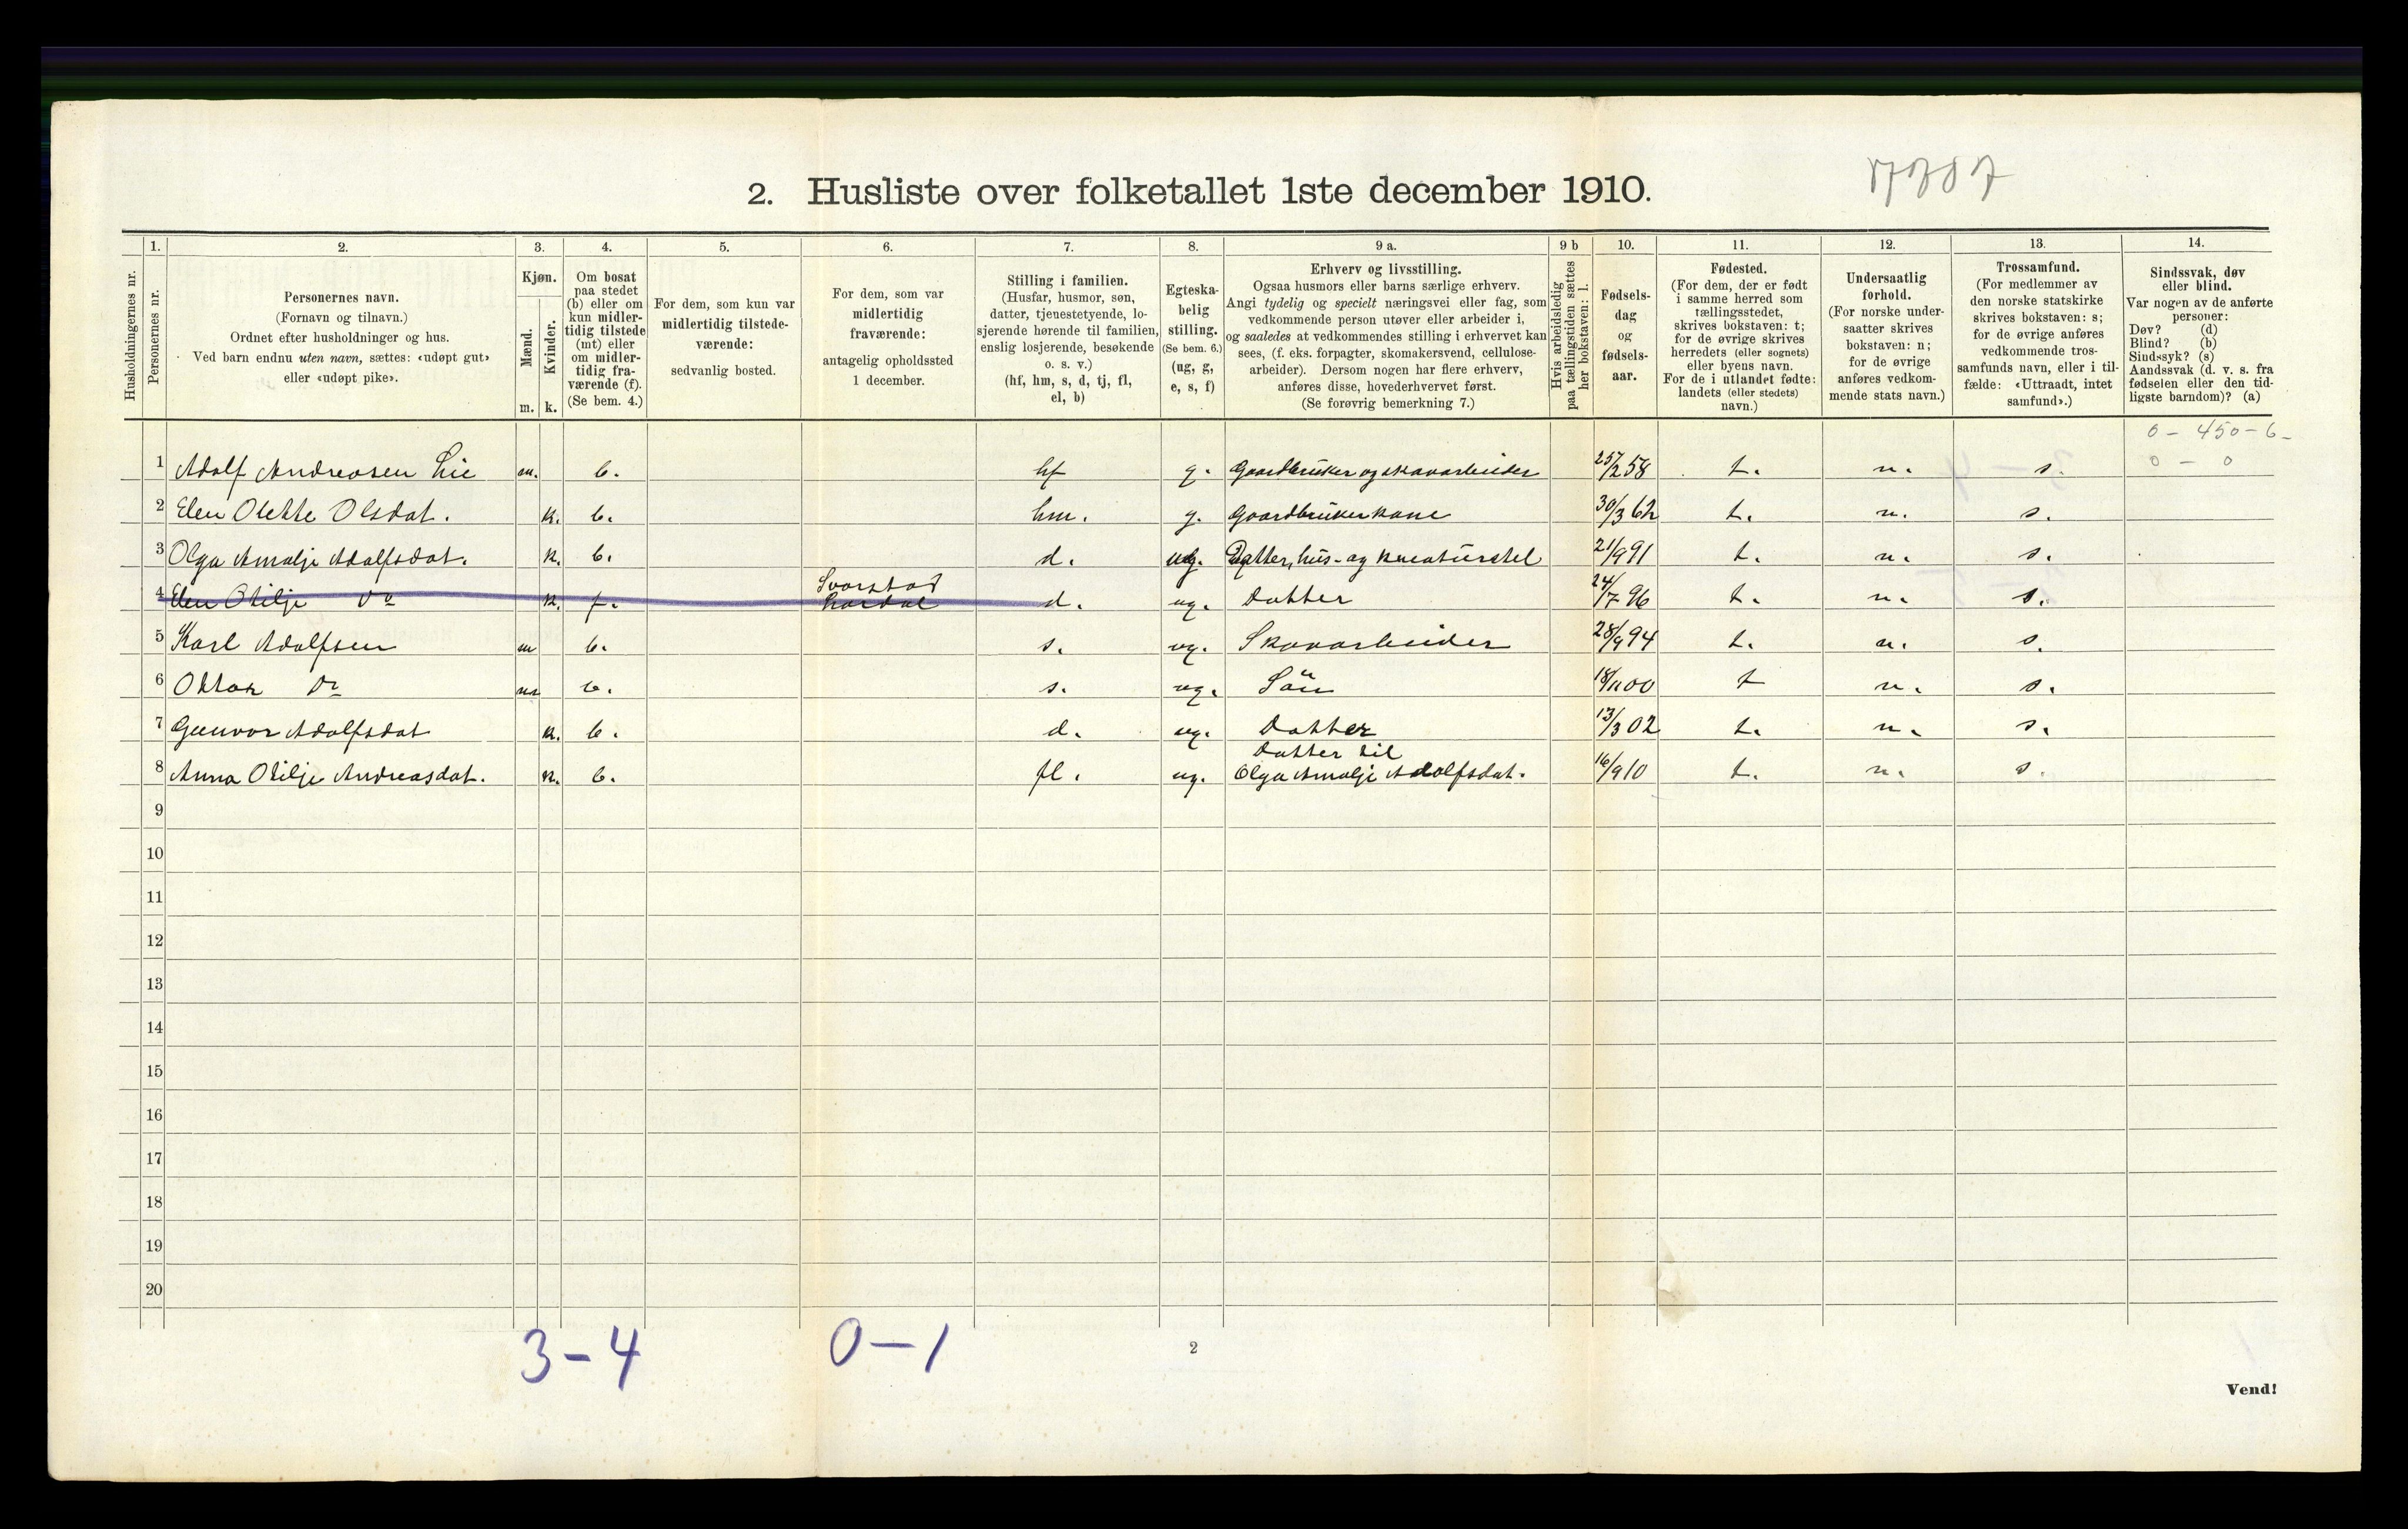 2. Husliste over folketallet 1ste december 1910.
Husholdningernes nr.
1.
Personernes nr.
2.
Personernes navn.
(Fornavn og tilnavn.)
Ordnet efter husholdninger og hus.
Ved barn endnu uten navn, sættes: «udøpt gut»
eller «udøpt pike».
3.
Kjøn.
Mænd.
Kvinder.
m. k.
4.
Om bosat
paa stedet
(b) eller om
kun midler-
tidig tilstede
(mt) eller
om midler-
tidig fra-
værende (f).
(Se bem. 4.)
5.
For dem, som kun var
midlertidig tilstede-
værende:
sedvanlig bosted.
6.
For dem, som var
midlertidig
fraværende:
antagelig opholdssted
1 december.
7.
Stilling i familien.
(Husfar, husmor, søn,
datter, tjenestetyende, lo-
sjerende hørende til familien,
enslig losjerende, besøkende
o. s. v.)
(hf, hm, s, d, tj, fl,
el, b)
8.
Egteska-
belig
stilling.
(Se bem. 6.)
(ug, g,
e, s, f)
9 a.
Erhverv og livsstilling.
Ogsaa husmors eller barns særlige erhverv.
Angi tydelig og specielt næringsvei eller fag, som
vedkommende person utøver eller arbeider i,
og saaledes at vedkommendes stilling i erhvervet kan
sees, (f. eks. forpagter, skomakersvend, cellulose-
arbeider). Dersom nogen har flere erhverv,
anføres disse, hovederhvervet først.
(Se forøvrig bemerkning 7.)
9 b
Hvis arbeidsledig
paa tællingstiden sættes
her bokstaven: l.
10.
Fødsels-
dag
og
fødsels-
aar.
11.
Fødested.
(For dem, der er født
i samme herred som
tællingsstedet,
skrives bokstaven: t;
for de øvrige skrives
herredets (eller sognets)
eller byens navn.
For de i utlandet fødte:
landets (eller stedets)
navn.)
12.
Undersaatlig
forhold.
(For norske under-
saatter skrives
bokstaven: n;
for de øvrige
anføres vedkom-
mende stats navn.)
13.
Trossamfund.
(For medlemmer av
den norske statskirke
skrives bokstaven: s;
for de øvrige anføres
vedkommende tros-
samfunds navn, eller i til-
fælde: «Uttraadt, intet
samfund».)
14.
Sindssvak, døv
eller blind.
Var nogen av de anførte
personer:
Døv? (d)
Blind? (b)
Sindssyk? (s)
Aandssvak (d. v. s. fra
fødselen eller den tid-
ligste barndom)? (a)
0 - 450 - 6 -
0 - 0
1 Adolf Andreasen Lie m. b. hf g. Gaardbruker og skovarbeider 25/2 58 t. n. s.
2 Elen Olette Olsdat. k. b. hm. g. Gaardbrukerkone 30/3 62 t. n. s.
3 Olga Amalje Adolfsdat. k. b. d. ug. Datter, hus- og kreaturstel 21/9 91 t. n. s.
Svarstad
4 Elen Otilje do k. f. d. ug. Datter 24/7 96 t. n. s.
5 Karl Adolfsen m b. s. ug. Skovarbeider 28/9 94 t. n. s.
6 Ottar do m b. s. ug. Sön 18/11 00 t n. s.
7 Gunvor Adolfsdat k. b. d. ug. Datter 13/3 02 t. n. s.
Datter til
8 Anna Otilje Andreasdat. k. b. fl. ug. Olga Amalje Adolfsdat. 16/9 10 t. n. s.
9
10
11
12
13
14
15
16
17
18
19
20
3 - 4 0 - 1
2
Vend!